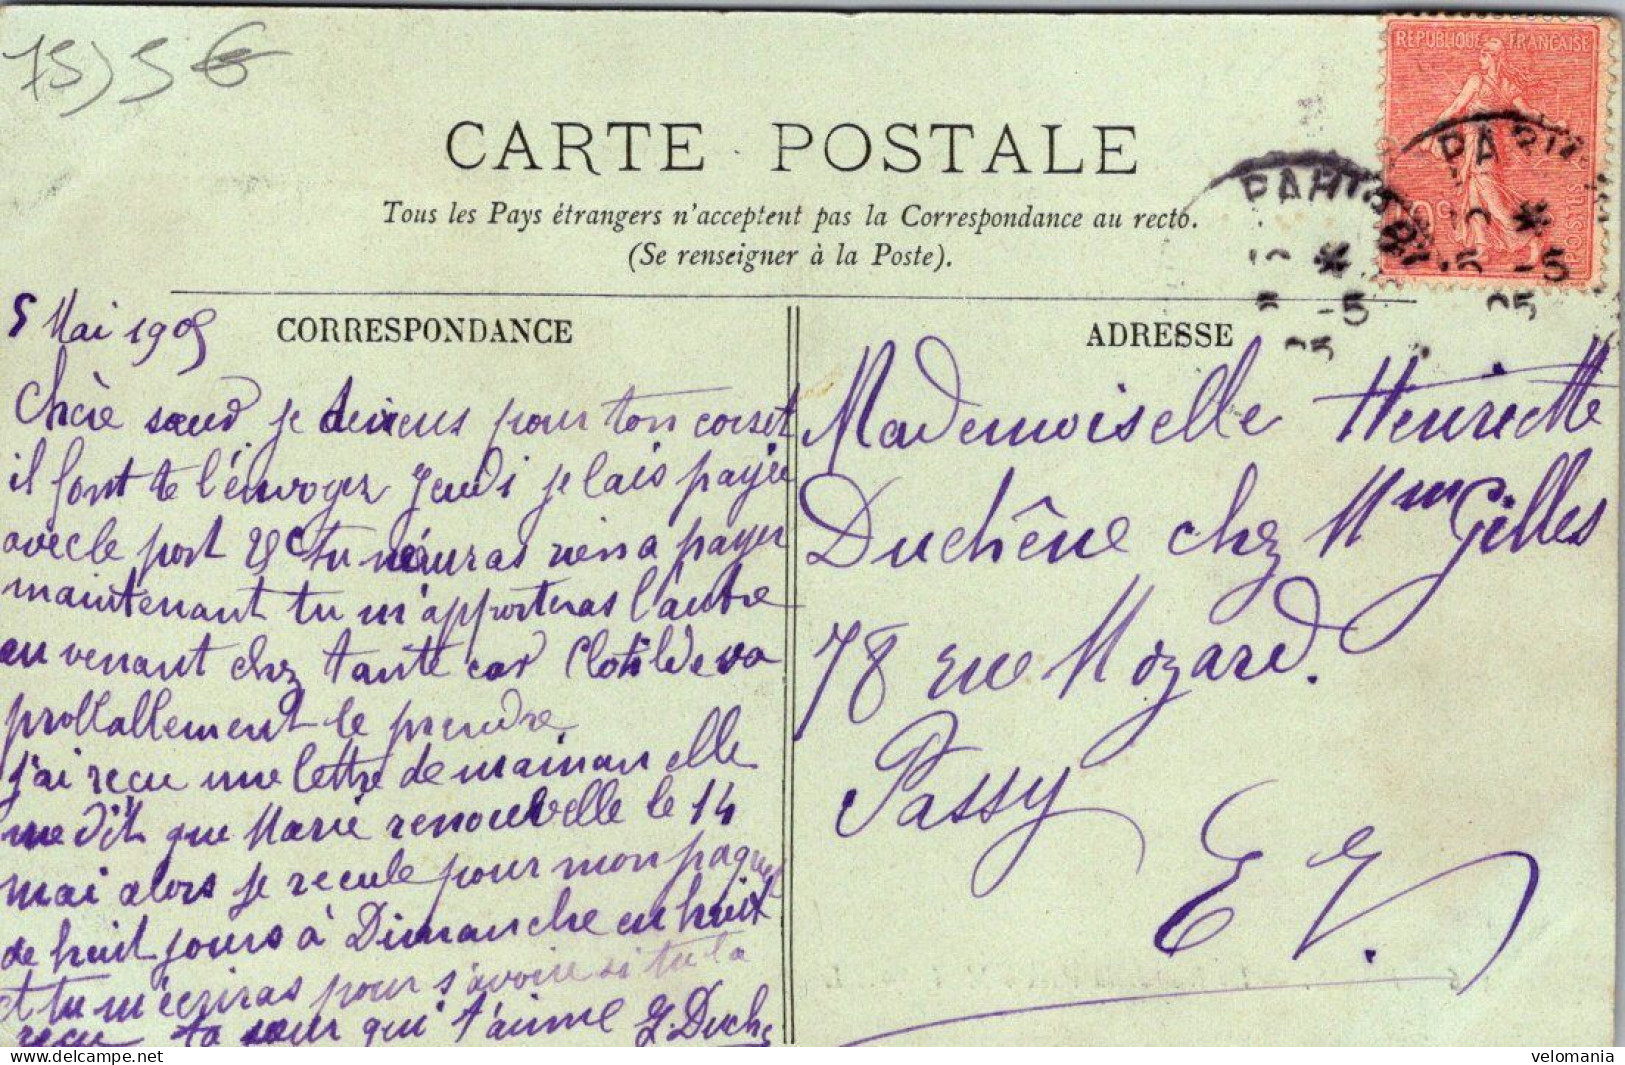 75) 5 €
CARTE POSTALE
Tous les Pays étrangers n'acceptent pas la Correspondance au recto.
(Se renseigner à la Poste).
REPUBLIQUE FRANÇAISE
POSTES
PARIS
-5
05
PARIS
15 -5
05
CORRESPONDANCE
5 Mai 1905
Chère sœur je deviens pour ton corset
il font te l'envoyer Jeudi je lais payée
avec le port tu n'auras rien a payer
maintenant tu m'apporteras l'autre
en venant chez tante car Clotilde va
probablement le prendre
j'ai reçu une lettre de maman elle
me dit que Marie renouvelle le 14
mai alors je recule pour mon paquet
de huit jours à Dimanche en huit
et tu m'écriras pour s'avoire si tu la
reçu ta sœur qui t'aime G. Duche
ADRESSE
Mademoiselle Henriette
Duchêne chez Mme Gilles
78 rue Mozard.
Passy
E. V.
velomania